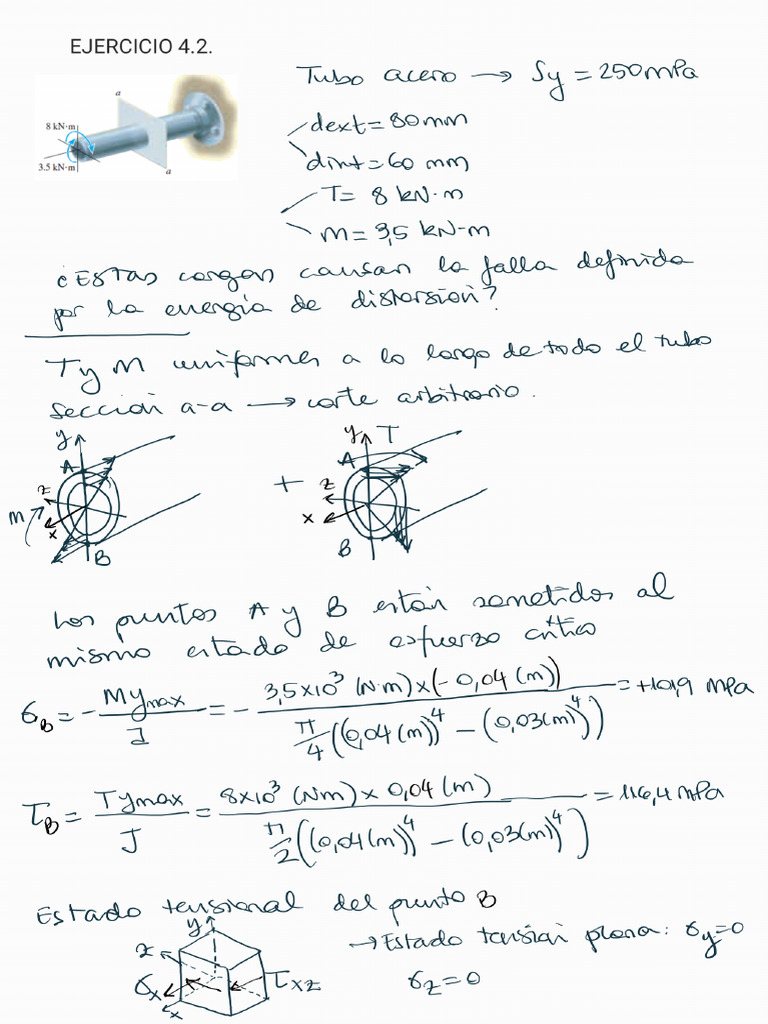 EJERCICIO 4.2.
Tubo acero → Sy = 250 mPa
a
8 kN·m
3.5 kN·m
a
dext = 80 mm
dint = 60 mm
T = 8 kN·m
M = 3,5 kN·m
¿Estas cargas causan la falla definida
por la energía de distorsión?
T y M uniformes a lo largo de todo el tubo
Sección a-a → corte arbitrario.
y A z M x B + y T A z x B
Los puntos A y B están sometidos al
mismo estado de esfuerzo crítico
σB = - M ymax / I = - 3,5×10³ (N·m) × (-0,04 (m)) / π/4 ((0,04 (m))⁴ - (0,03 (m))⁴) = +101,9 MPa
τB = T ymax / J = 8×10³ (Nm) × 0,04 (m) / π/2 ((0,04 (m))⁴ - (0,03 (m))⁴) = 116,4 MPa
Estado tensional del punto B
y z σx x τxz
→ Estado tensión plana: σy = 0
σz = 0